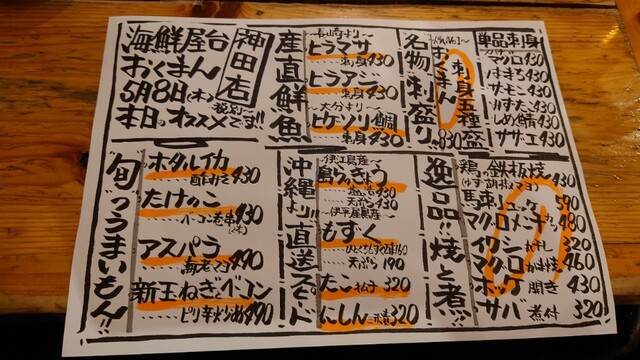 海鮮屋台
おくまん
神田店
5月8日(木)
税別
本日のオススメです!!
産直鮮魚
～長崎より～
ヒラマサ
刺身430
ヒラアジ
刺身430
～大分より～
ヒゲソリ鯛
刺身430
名物!刺盛り
おくまん
刺身五種盛
830
単品刺身
マグロ430
はまち430
サーモン430
しめ鯖430
サザエ430
旬のうまいもん!!
ホタルイカ
酢みそ430
たけのこ
ベーコン巻串430
アスパラ
海老マヨ490
新玉ねぎとベーコン
ピリ辛炒め490
沖縄より!!直送スピード
伊江島産
島らっきょう
430
天ぷら430
～伊平屋島産～
もずく
160
天ぷら190
たこキムチ320
にしん320
逸品!!焼と煮!!
鶏の鉄板焼
430
590
480
イワシ丸干し320
マグロカマ焼460
ホッケ開き430
サバ煮付320